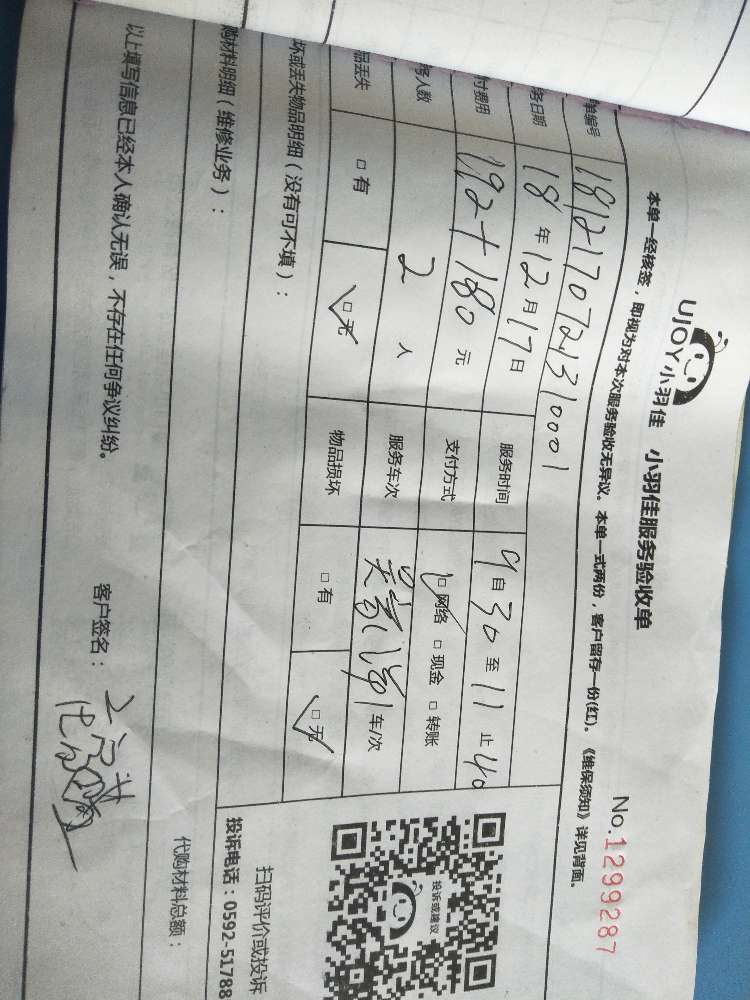 UJOY小羽佳 小羽佳服务验收单
No.1299287
本单一经核签，即视为对本次服务验收无异议。本单一式两份，客户留存一份(红)。《维保须知》详见背面。
单编号 1812170721310001
务日期 18年12月17日 服务时间 9自30至11止40
付费用 192+180元 支付方式 □网络 □现金 □转账
务人数 2人 服务车次 车/次
品丢失 □有 □无 物品损坏 □有 □无
坏或丢失物品明细（没有可不填）：
购材料明细（维修业务）：
代购材料总额：
以上填写信息已经本人确认无误，不存在任何争议纠纷。
客户签名：
投诉或建议
扫码评价或投诉
投诉电话：0592-51788